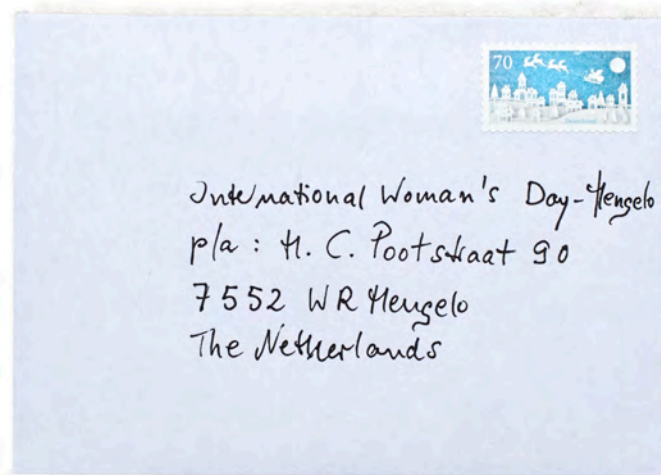 70
International Woman's Day-Hengelo
p/a : H. C. Pootstraat 90
7552 WR Hengelo
The Netherlands